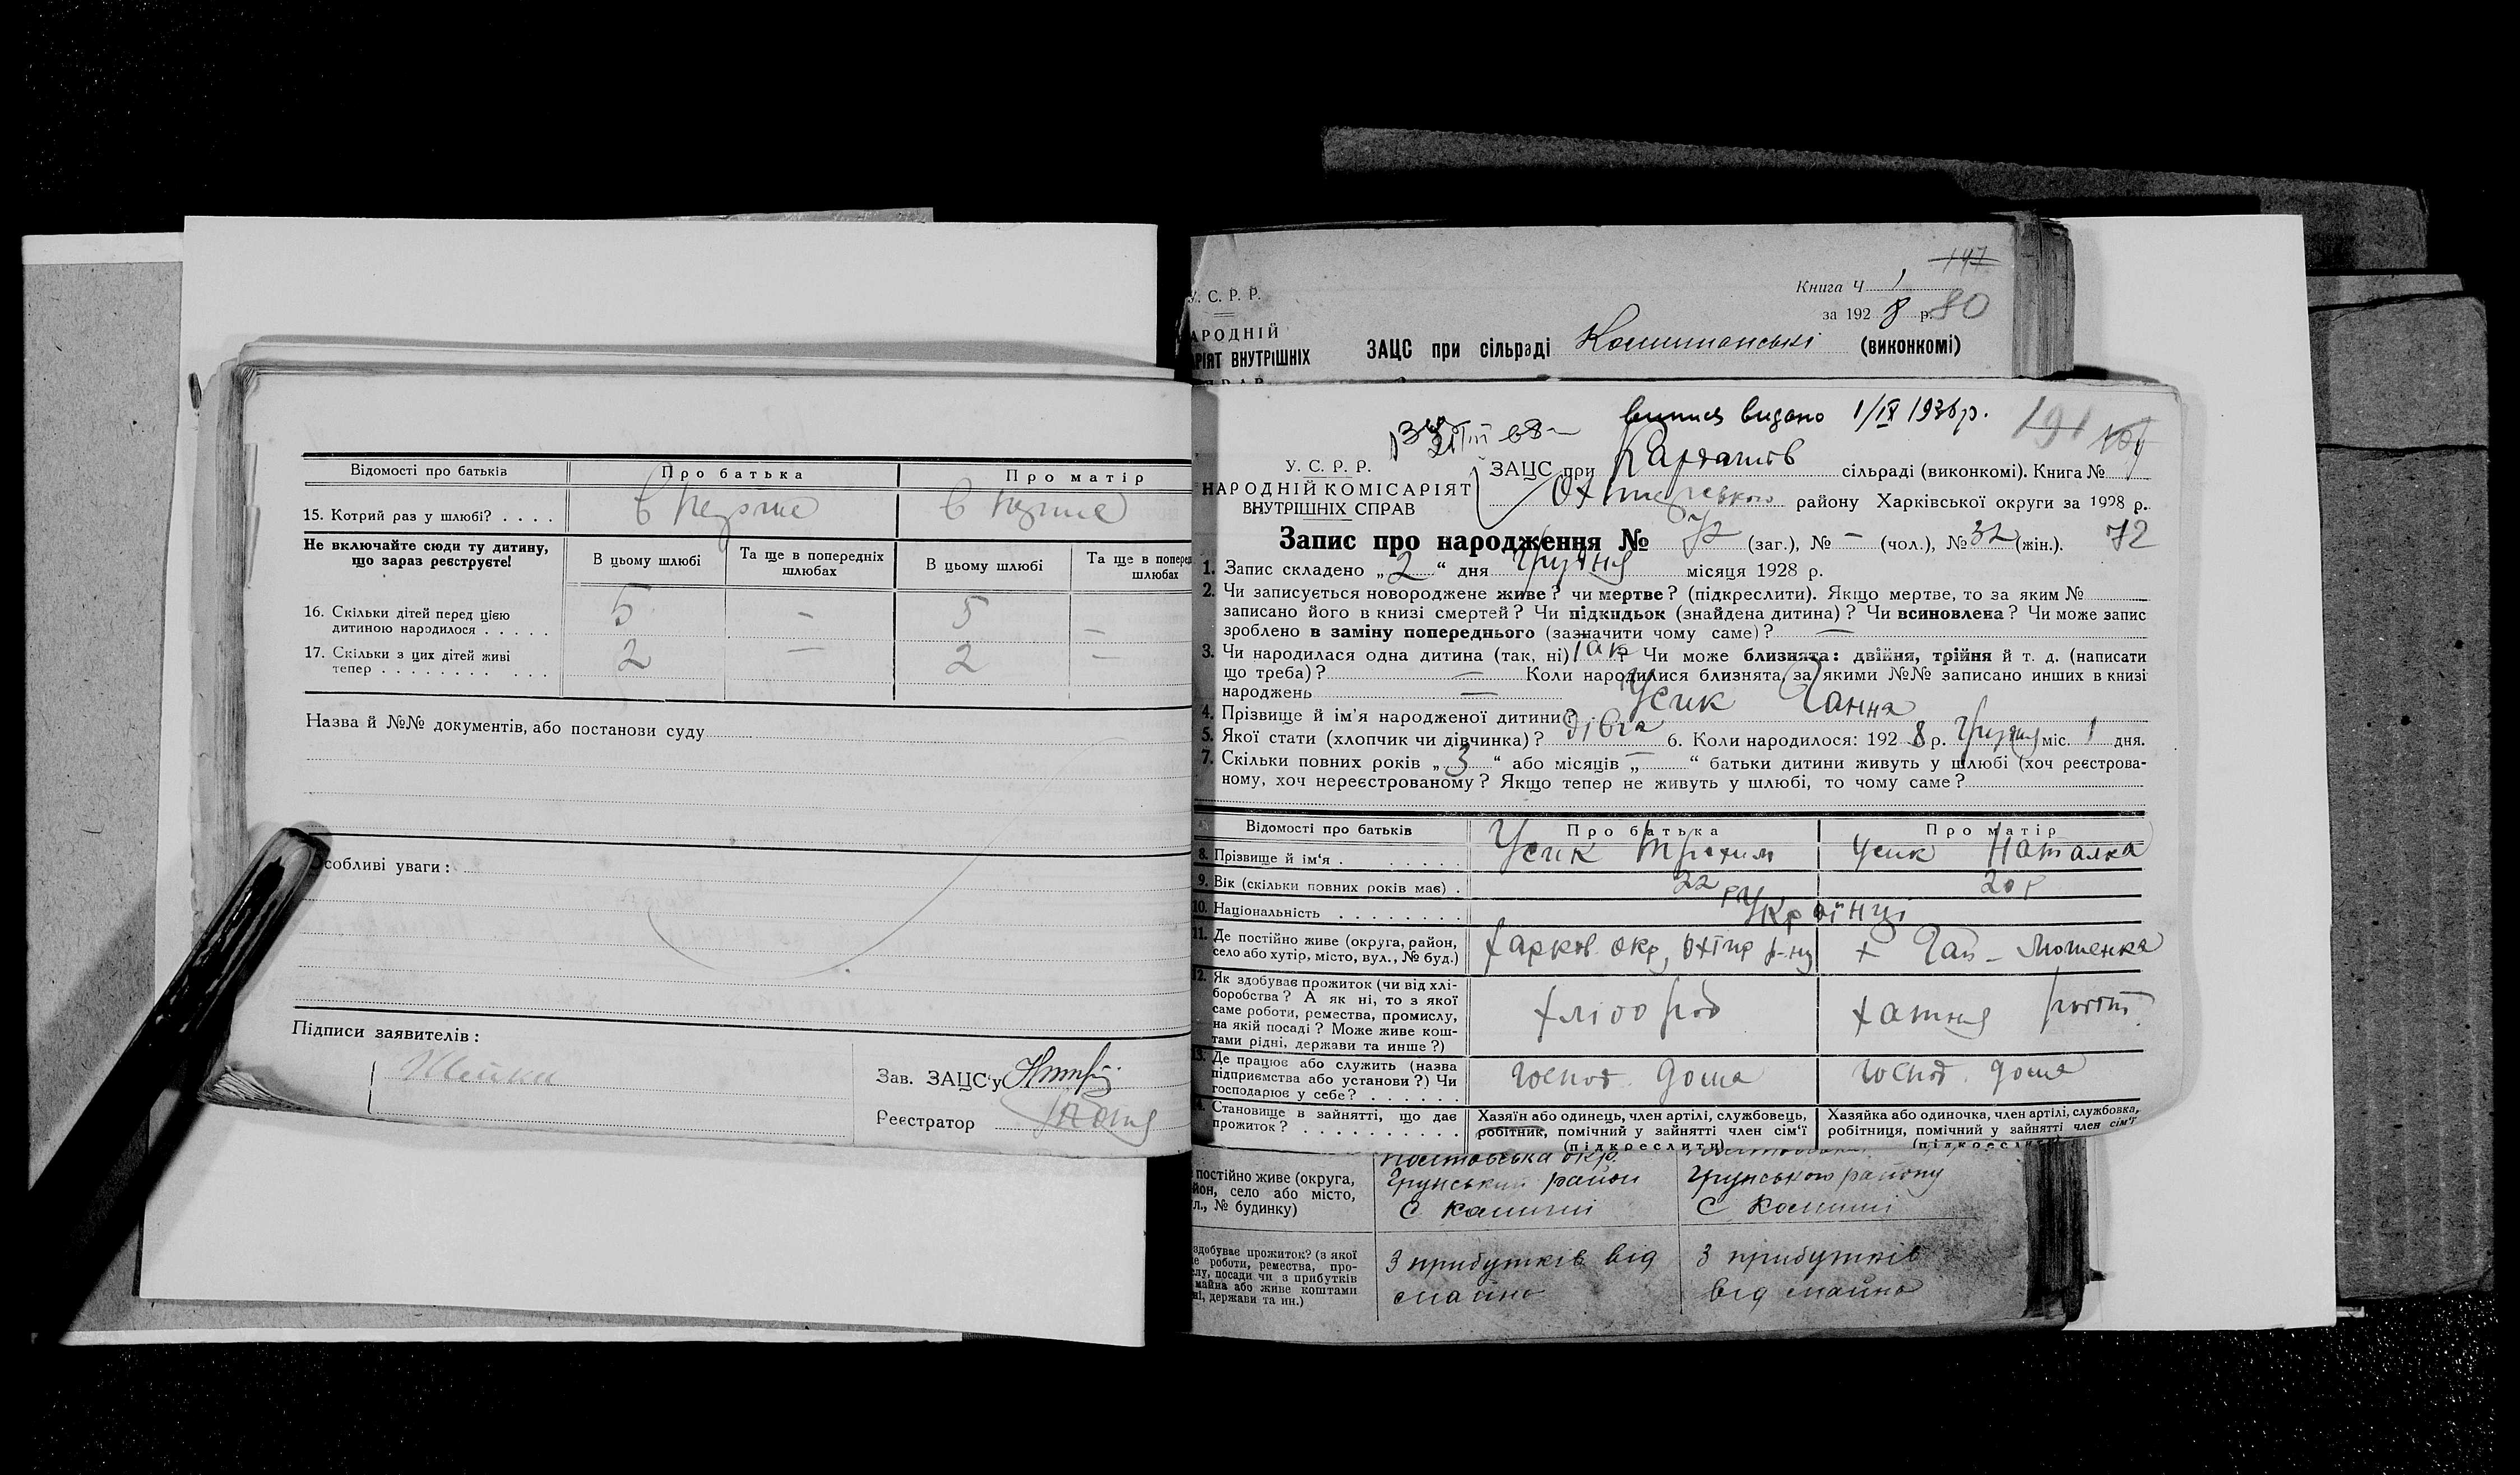 Відомості про батьків Про батька Про матір
15. Котрий раз у шлюбі? . . . . в перше в перше
Не включайте сюди ту дитину, що зараз реєструєте!
В цьому шлюбі Та ще в попередніх шлюбах В цьому шлюбі Та ще в поперед шлюбах
16. Скільки дітей перед цією
дитиною народилося . . . . . 5 — 5 —
17. Скільки з цих дітей живі
тепер . . . . . . . . . . . 2 — 2 —
Назва й №№ документів, або постанови суду
Особливі уваги:
Підписи заявителів:
Зав. ЗАЦС'у
Реєстратор
147
У. С. Р. Р.
Книга Ч 1
за 1928 р. 80
АРОДНІЙ
РІЯТ ВНУТРІШНІХ
ЗАЦС при сільраді (виконкомі)
випись видано 1/IX 1936р. 191
У. С. Р. Р.
НАРОДНІЙ КОМІСАРІЯТ
ВНУТРІШНІХ СПРАВ
ЗАЦС при сільраді (виконкомі). Книга №
району Харківської округи за 1928 р.
Запис про народження № 72 (заг.), № — (чол.), № 32 (жін.). 72
1. Запис складено „2“ дня Грудня місяця 1928 р.
2. Чи записується новороджене живе? чи мертве? (підкреслити). Якщо мертве, то за яким №
записано його в книзі смертей? Чи підкидьок (знайдена дитина)? Чи всиновлена? Чи може запис
зроблено в заміну попереднього (зазначити чому саме)? —
3. Чи народилася одна дитина (так, ні) так? Чи може близнята: двійня, трійня й т. д. (написати
що треба)? — Коли народилися близнята, за якими №№ записано инших в книзі
народжень —
4. Прізвище й ім'я народженої дитини? Усик Ганна
5. Якої стати (хлопчик чи дівчинка)? дівча 6. Коли народилося: 1928 р. Грудня міс. 1 дня.
7. Скільки повних років „3“ або місяців „—“ батьки дитини живуть у шлюбі (хоч реєстрова-
ному, хоч нереєстрованому? Якщо тепер не живуть у шлюбі, то чому саме?
Відомості про батьків Про батька Про матір
8. Прізвище й ім'я . . . . . . Усик Трохим Усик Наталка
9. Вік (скільки повних років має) . 22 р 20 р
10. Національність . . . . . . . . Українці
11. Де постійно живе (округа, район,
село або хутір, місто, вул., № буд.) Харков. окр, Охтир р-ну х Гай-Мошенка
12. Як здобуває прожиток (чи від хлі-
боробства? А як ні, то з якої
саме роботи, ремества, промислу,
на якій посаді? Може живе кош-
тами рідні, держави та инше?) хлібороб хатня
13. Де працює або служить (назва
підприємства або установи?) Чи
господарює у себе? . . . . . . господ. дома господ. дома
14. Становище в зайнятті, що дає
прожиток? . . . . . . . . . . .
Хазяїн або одинець, член артілі, службовець,
робітник, помічний у зайнятті член сім'ї
(підкреслити)
Хазяйка або одиночка, член артілі, службовка,
робітниця, помічний у зайнятті член сім'ї
(підкреслити)
постійно живе (округа,
йон, село або місто,
л., № будинку)
Полтавська окр.
Грунський район
С Комиші
Грунського району
С Комиші
здобуває прожиток? (з якої
е роботи, ремества, про-
слу, посади чи з прибутків
майна або живе коштами
ні, держави та ин.)
З прибутків від
майна
З прибутків
від майна